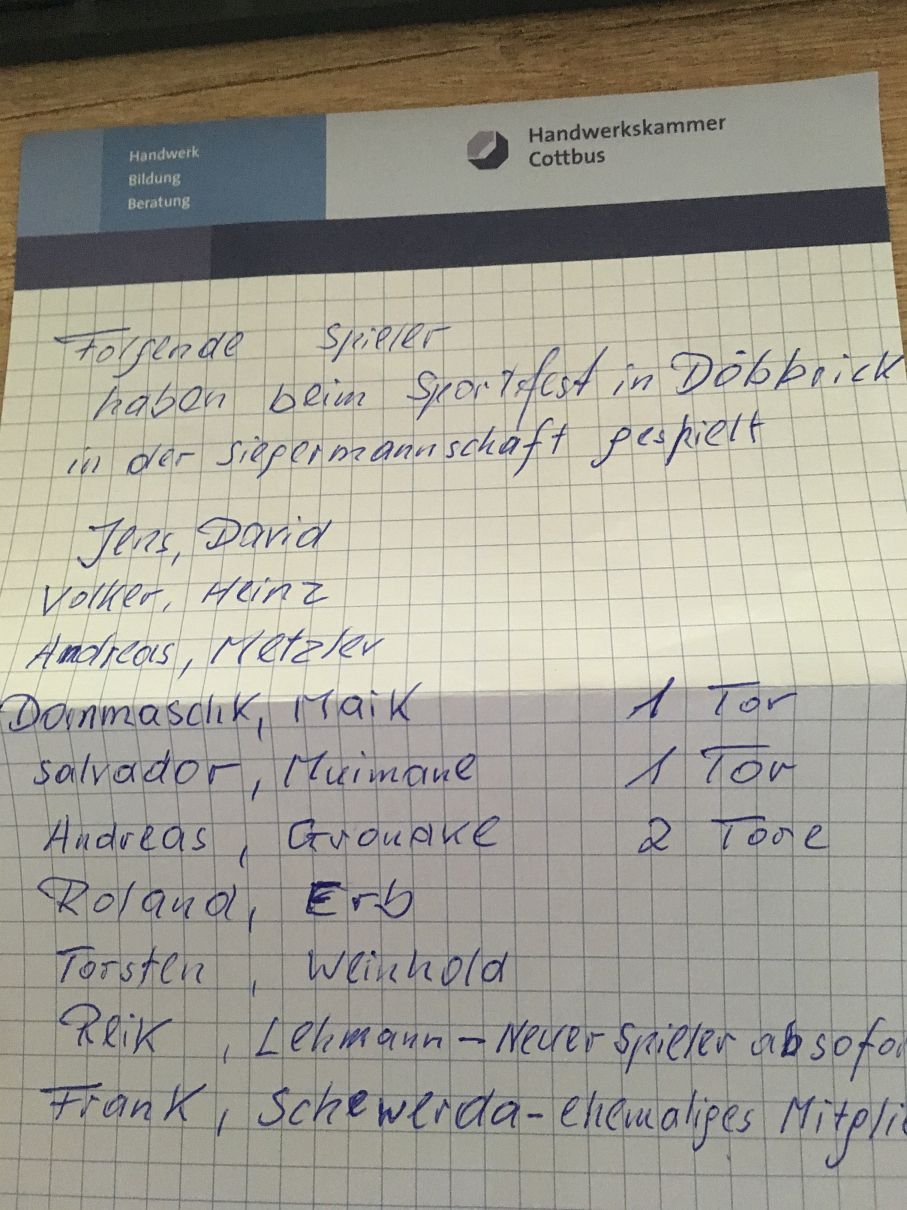 Handwerk
Bildung
Beratung
Handwerkskammer
Cottbus
Folgende Spieler
haben beim Sportsfest in Döbbrick
in der Siegermannschaft gespielt
Jens, David
Volker, Heinz
Andreas, Metzler
Dommaschk, Maik 1 Tor
Salvador, Muimane 1 Tor
Andreas, Gronake 2 Tore
Roland, Erb
Torsten, Weinhold
Reik, Lehmann - Neuer Spieler ab sofo
Frank, Schewerda - ehemaliges Mitglie